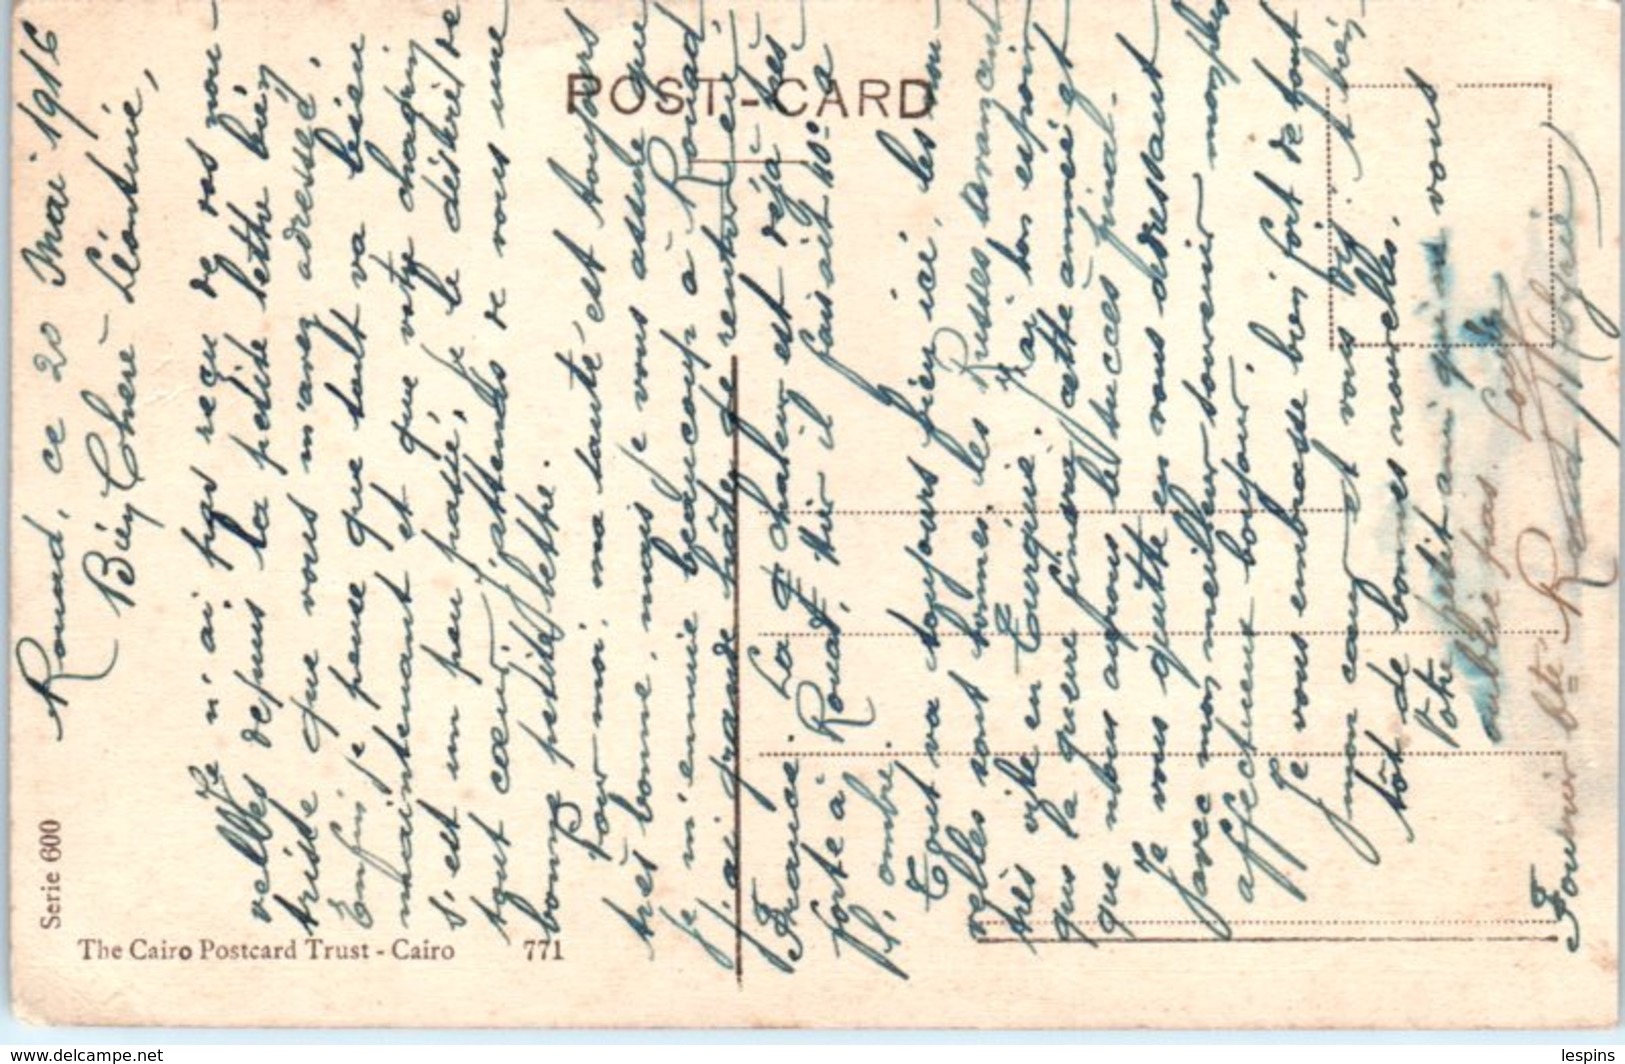 POST-CARD
Serie 600
The Cairo Postcard Trust - Cairo 771
Rouad, ce 20 Mai 1916
Bien Chère Léontine,
Je n'ai pas reçu de vos nou-
velles depuis la petite lettre bien
triste que vous m'avez adressé.
Enfin je pense que tout va bien
maintenant et que votre chagrin
s'est un peu passé, je le désire de
tout cœur, j'attends de vous une
bonne petite lettre.
Pour moi, ma santé est toujours
très bonne, mais je vous assure que
je m'ennuie beaucoup à Rouad,
j'ai grande hâte de rentrer en
France. La chaleur est déjà très
forte à Rouad, hier il faisait 40° à
l'ombre.
Tout va toujours bien ici, les nou-
velles sont bonnes, les Russes avancent
très vite en Turquie. J'ai bon espoir
que la guerre finira cette année et
que nous aurons le succès final.
Je vous quitte en vous adressant
avec mon meilleur souvenir mon plus
affectueux bonjour.
Je vous embrasse bien fort de tout
mon cœur et vous dis à bien
tôt de bonnes nouvelles.
Votre petit ami qui ne vous
oublie pas.
Louis
Fournier
Rouad